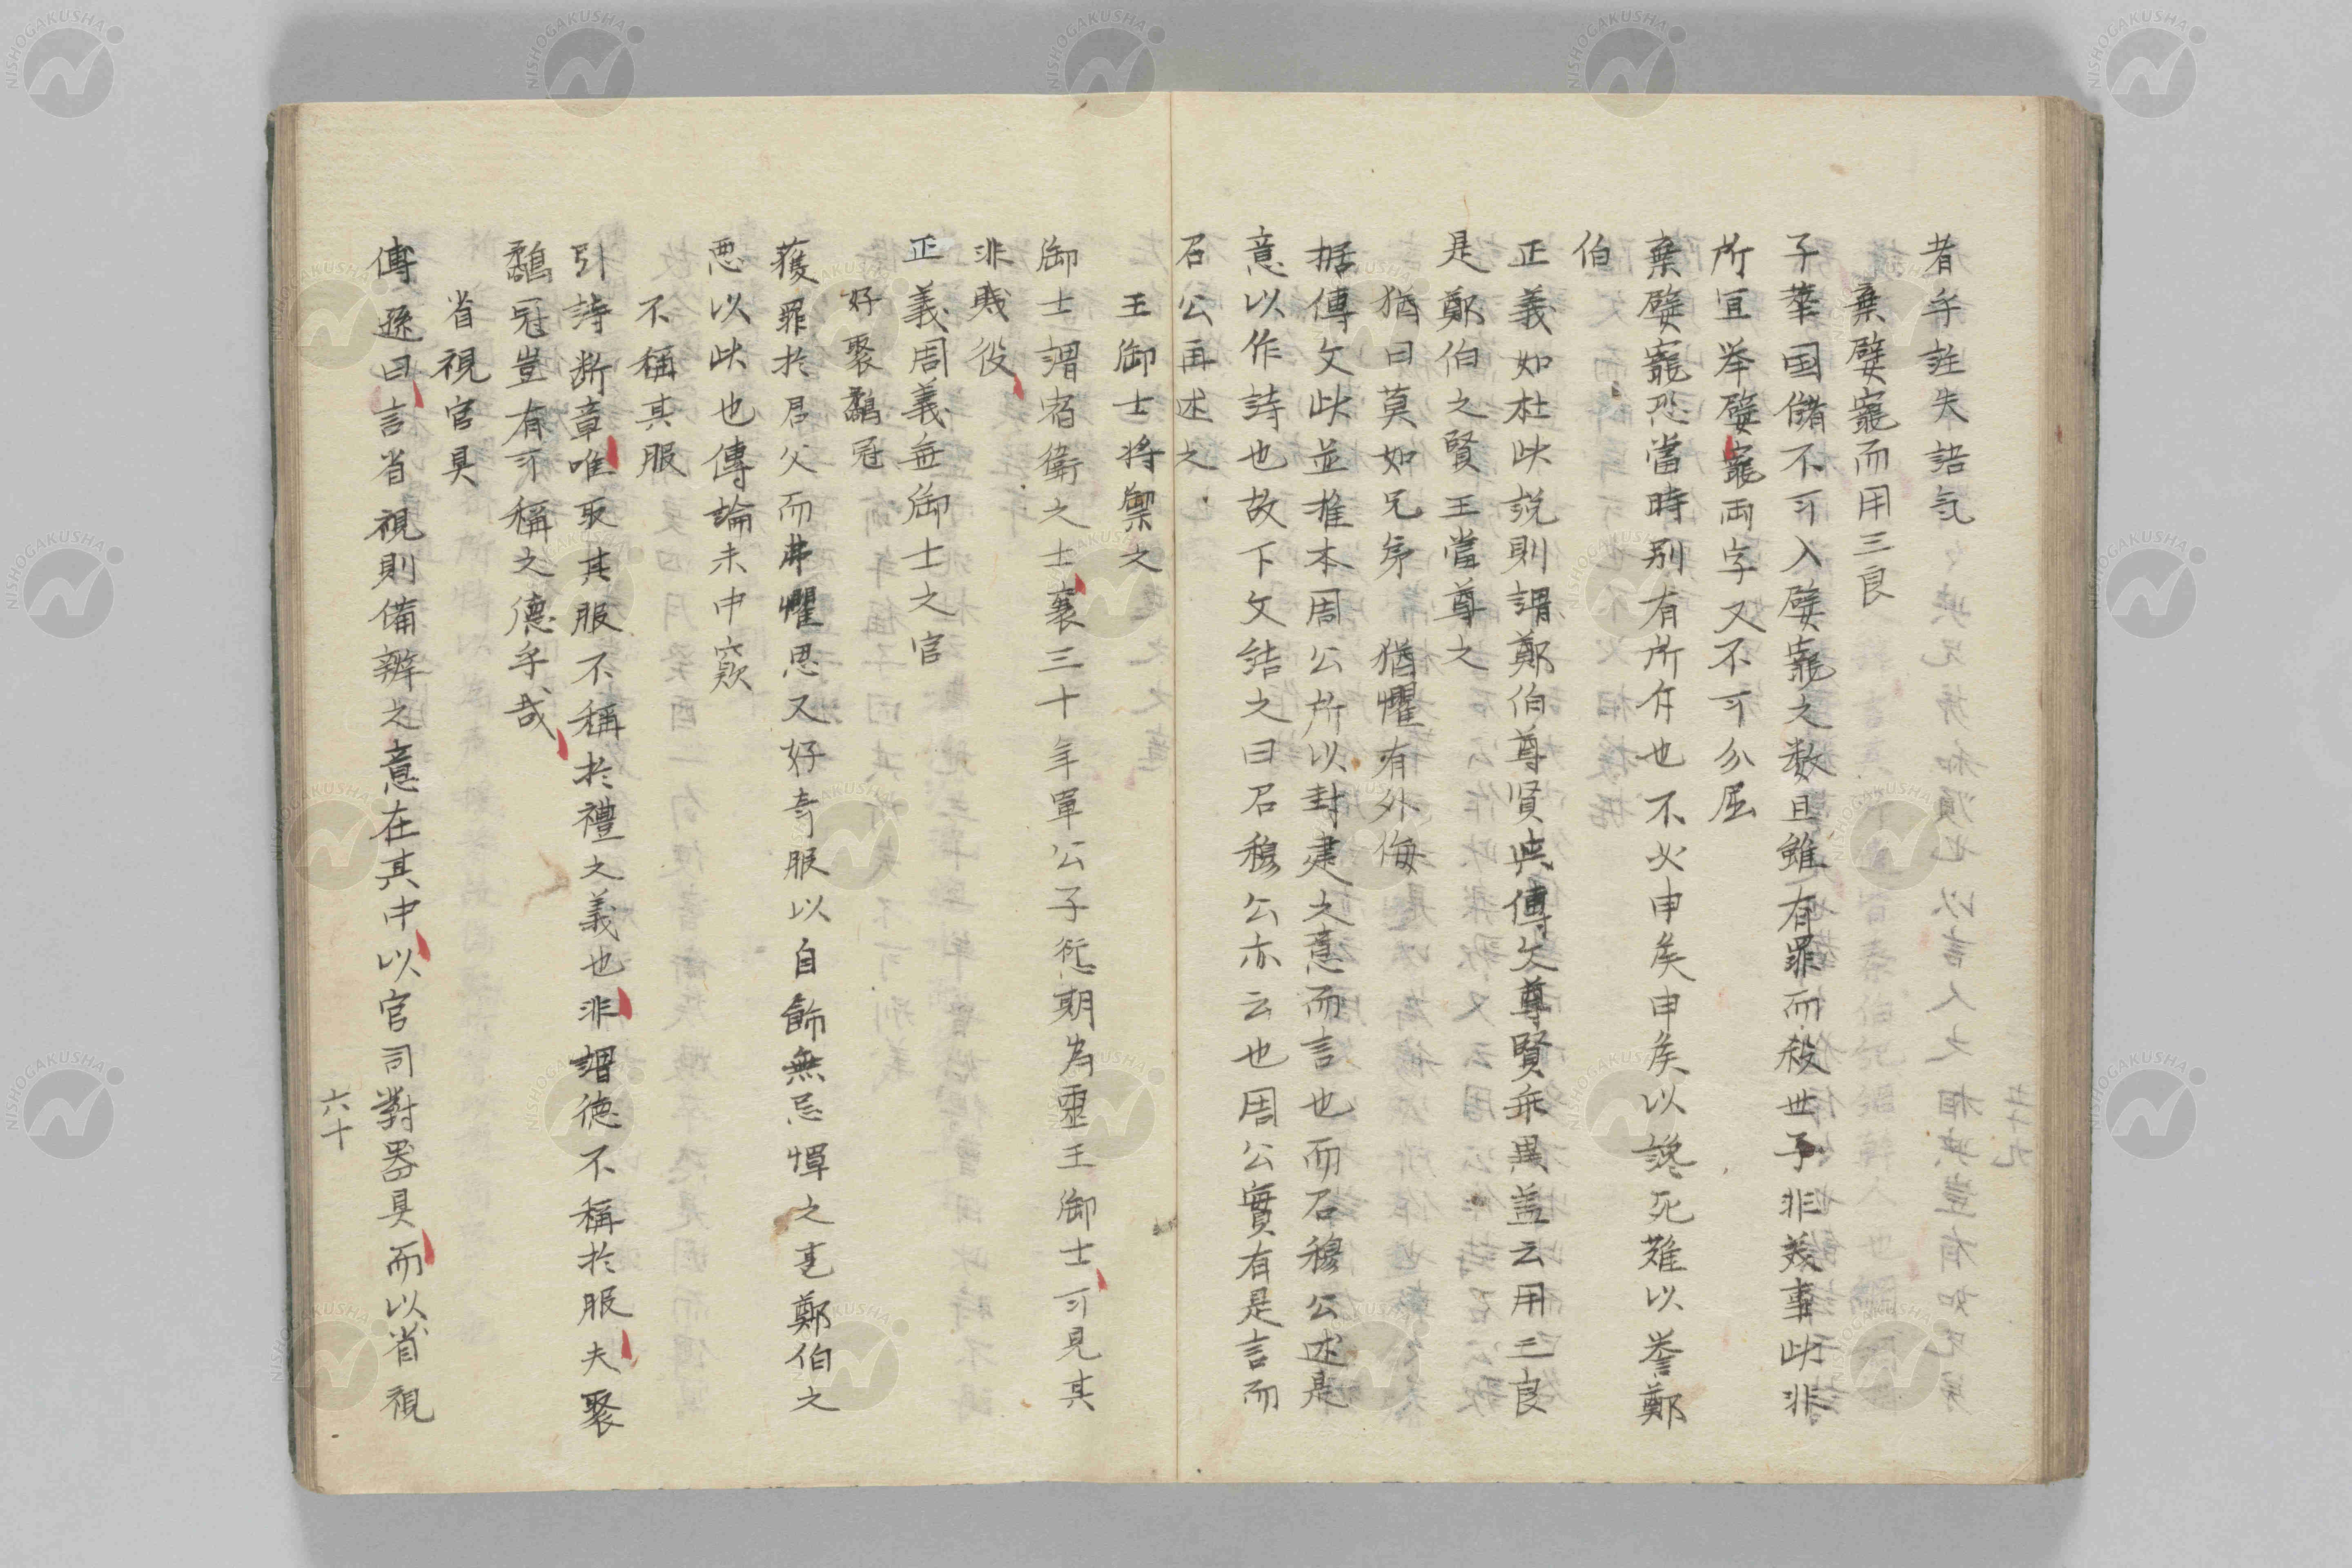 者乎註失語気
棄嬖寵而用三良
子華国儲不可入嬖寵之数且雖有罪而殺世子非美事此非
所宜挙嬖寵両字又不可分屈
棄嬖寵恐當時別有所作也不必申矣申矦以讒死難以誉鄭
伯
正義如杜此説則謂鄭伯尊賢與傳文尊賢乖異盖云用三良
是鄭伯之賢王當尊之
猶曰莫如兄弟　猶懼有外侮
据傳文此並推本周公所以封建之意而言也而召穆公述是
意以作詩也故下文結之曰召穆公亦云也周公實有是言而
召公再述之
王御士将禦之
御士謂宿衛之士襄三十年単公子愆期為靈王御士可見其
非賎役
正義周義無御士之官
好聚鷸冠
獲罪於君父而弗懼思又好奇服以自飾無忌憚之甚鄭伯之
悪以此也傳論未中窾
不稱其服
引詩断章唯取其服不稱於禮之義也非謂徳不稱於服夫聚
鷸冠豈有可稱之德乎哉
省視官具
傳遜曰言省視則備辨之意在其中以官司對器具而以省視
六十
NISHOGAKUSHA